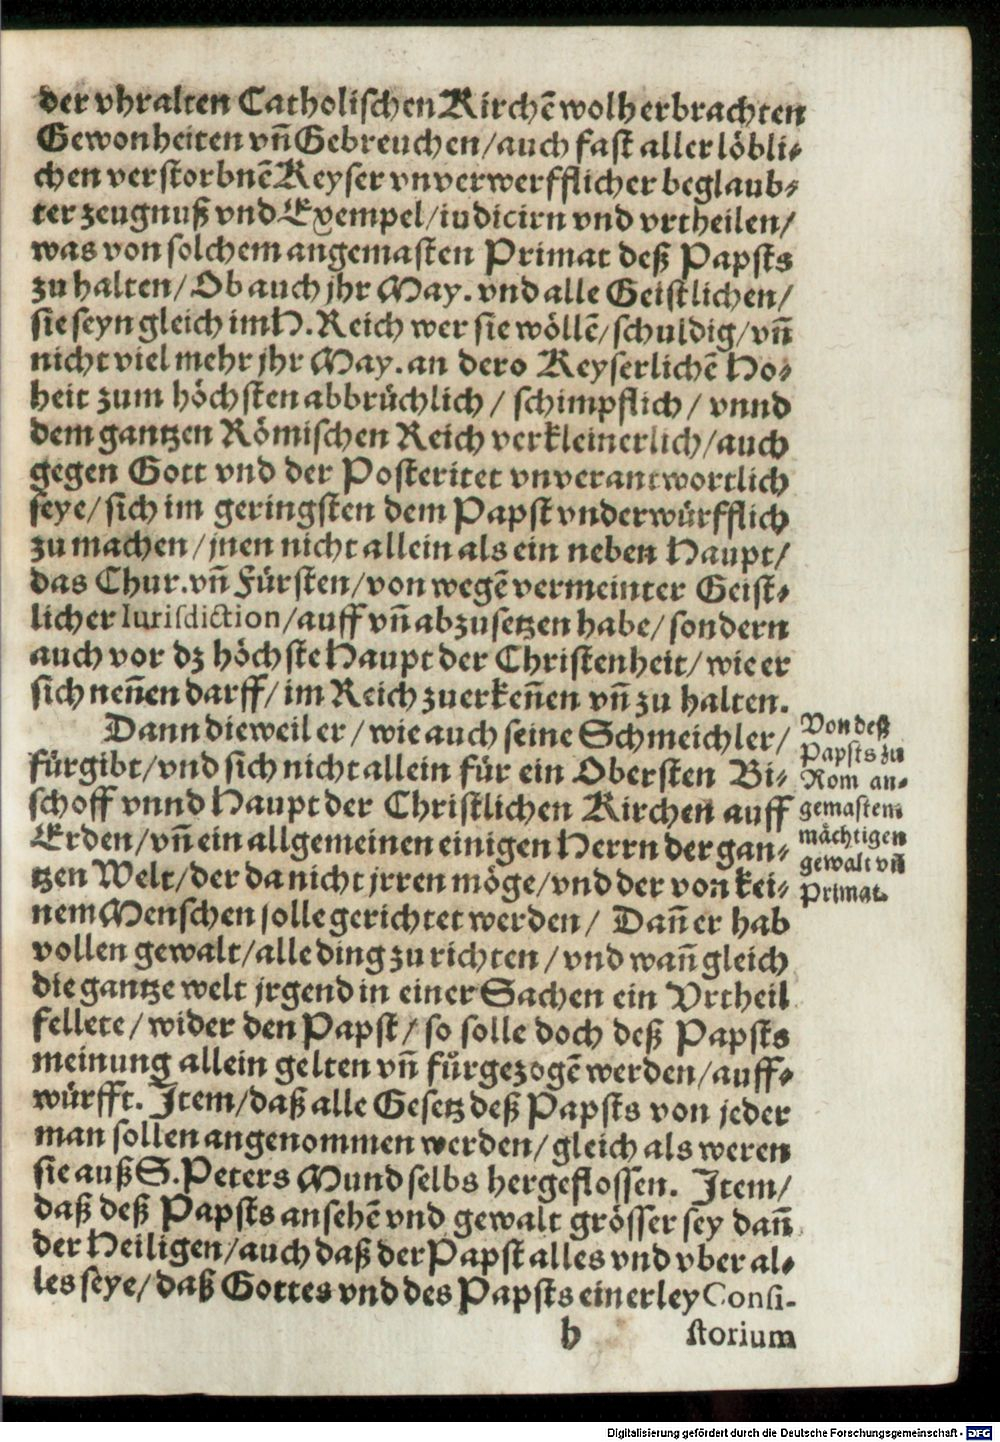 der vhralten Catholischen Kirchẽ wolherbrachten
Gewonheiten vñ Gebreuchen/auch fast aller löbli-
chen verstorbnẽ Keyser vnverwerfflicher beglaub-
ter zeugnuß vnd Exempel/iudicirn vnd vrtheilen/
was von solchem angemasten Primat deß Papsts
zu halten/ Ob auch jhr May. vnd alle Geistlichen/
sie seyn gleich im H. Reich wer sie wöllẽ/schuldig/vñ
nicht viel mehr jhr May. an dero Keyserlichẽ Ho-
heit zum höchsten abbrüchlich / schimpflich / vnnd
dem gantzen Römischen Reich verkleinerlich/auch
gegen Gott vnd der Posteritet vnverantwortlich
seye/sich im geringsten dem Papst vnderwürfflich
zu machen/jnen nicht allein als ein neben Haupt/
das Chur.vñ Fürsten/von wegẽ vermeinter Geist-
licher Iurisdiction/auff vñ abzusetzen habe/sondern
auch vor dz höchste Haupt der Christenheit/wie er
sich neñen darff/im Reich zuerkeñen vñ zu halten.
Dann dieweil er/wie auch seine Schmeichler/
fürgibt/vnd sich nicht allein für ein Obersten Bi-
schoff vnnd Haupt der Christlichen Kirchen auff
Erden/vñ ein allgemeinen einigen Herrn der gan-
tzen Welt/der da nicht jrren möge/vnd der von kei-
nem Menschen solle gerichtet werden/ Dañ er hab
vollen gewalt/alle ding zu richten/vnd wañ gleich
die gantze welt jrgend in einer Sachen ein Vrtheil
fellete/wider den Papst/so solle doch deß Papsts
meinung allein gelten vñ fürgezogẽ werden/auff-
würfft. Item/daß alle Gesetz deß Papsts von jeder
man sollen angenommen werden/gleich als weren
sie auß S.Peters Mund selbs hergeflossen. Item/
daß deß Papsts ansehẽ vnd gewalt grösser sey dañ
der Heiligen/auch daß der Papst alles vnd vber al-
les seye/daß Gottes vnd des Papsts einerley Consi-
b storium
Von deß
Papsts zu
Rom an-
gemastem
mächtigen
gewalt vñ
Primat.
Digitalisierung gefördert durch die Deutsche Forschungsgemeinschaft - DFG